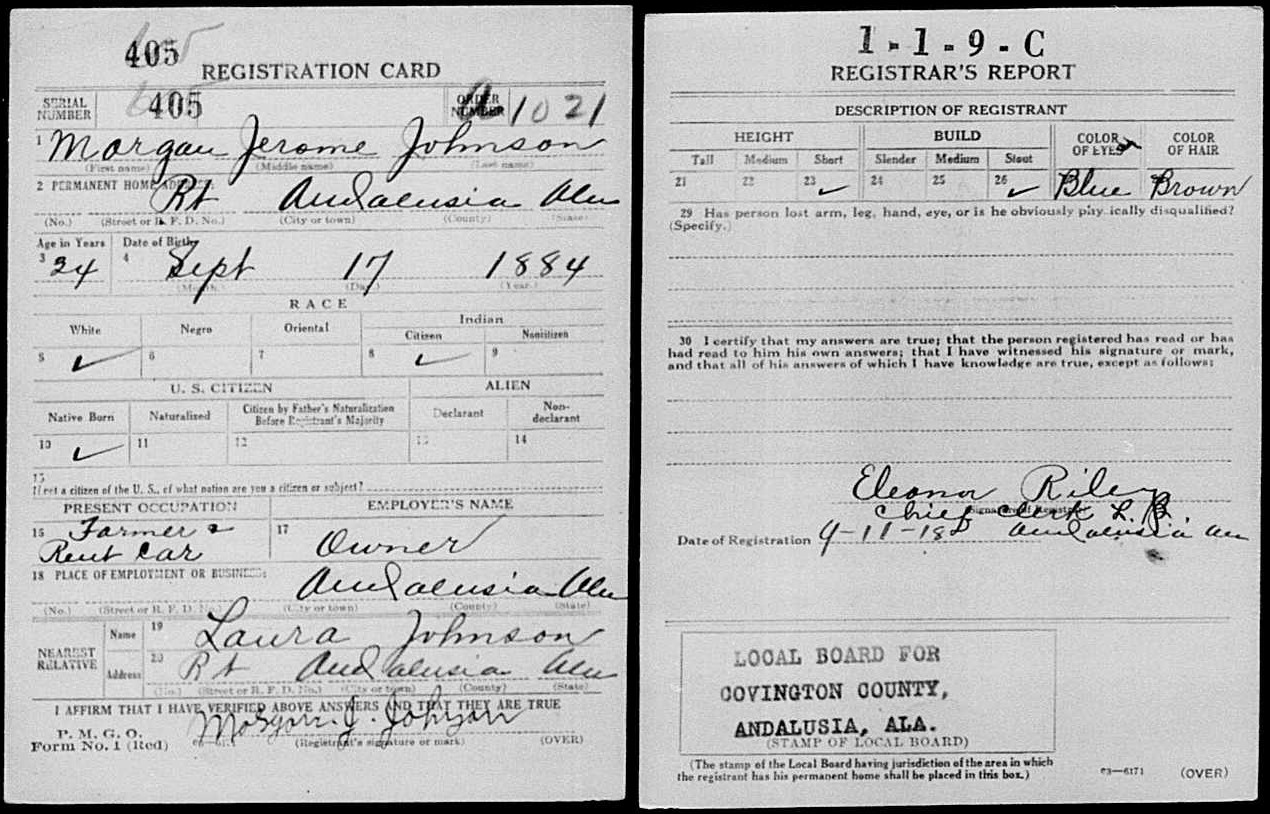 405
REGISTRATION CARD
SERIAL NUMBER 405 ORDER NUMBER A 1021
1 Morgan Jerome Johnson
(First name) (Middle name) (Last name)
2 PERMANENT HOME ADDRESS:
Rt Andalusia Ala
(No.) (Street or R. F. D. No.) (City or town) (County) (State)
Age in Years Date of Birth
3 34 4 Sept 17 1884
(Month.) (Day.) (Year.)
RACE
White Negro Oriental Indian
Citizen Noncitizen
5 ✓ 6 7 8 ✓ 9
U. S. CITIZEN ALIEN
Native Born Naturalized Citizen by Father's Naturalization Before Registrant's Majority Declarant Non-declarant
10 ✓ 11 12 13 14
15
If not a citizen of the U. S., of what nation are you a citizen or subject?
PRESENT OCCUPATION EMPLOYER'S NAME
16 Farmer & 17
Rent Car Owner
18 PLACE OF EMPLOYMENT OR BUSINESS:
Andalusia Ala
(No.) (Street or R. F. D. No.) (City or town) (County) (State)
NEAREST RELATIVE
Name 19 Laura Johnson
Address 20 Rt Andalusia Ala
(No.) (Street or R. F. D. No.) (City or town) (County) (State)
I AFFIRM THAT I HAVE VERIFIED ABOVE ANSWERS AND THAT THEY ARE TRUE
Morgan J. Johnson
P. M. G. O.
Form No. 1 (Red) (Registrant's signature or mark) (OVER)
1-1-9-C
REGISTRAR'S REPORT
DESCRIPTION OF REGISTRANT
HEIGHT BUILD COLOR OF EYES COLOR OF HAIR
Tall Medium Short Slender Medium Stout
21 22 23 ✓ 24 25 26 ✓ Blue Brown
29 Has person lost arm, leg, hand, eye, or is he obviously physically disqualified?
(Specify.)
30 I certify that my answers are true; that the person registered has read or has
had read to him his own answers; that I have witnessed his signature or mark,
and that all of his answers of which I have knowledge are true, except as follows:
Eleanor Riley
(Signature of Registrar)
Chief Clerk L. B.
Date of Registration 9-11-18 Andalusia Ala
LOCAL BOARD FOR
COVINGTON COUNTY,
ANDALUSIA, ALA.
(STAMP OF LOCAL BOARD)
(The stamp of the Local Board having jurisdiction of the area in which
the registrant has his permanent home shall be placed in this box.)
03—6171 (OVER)